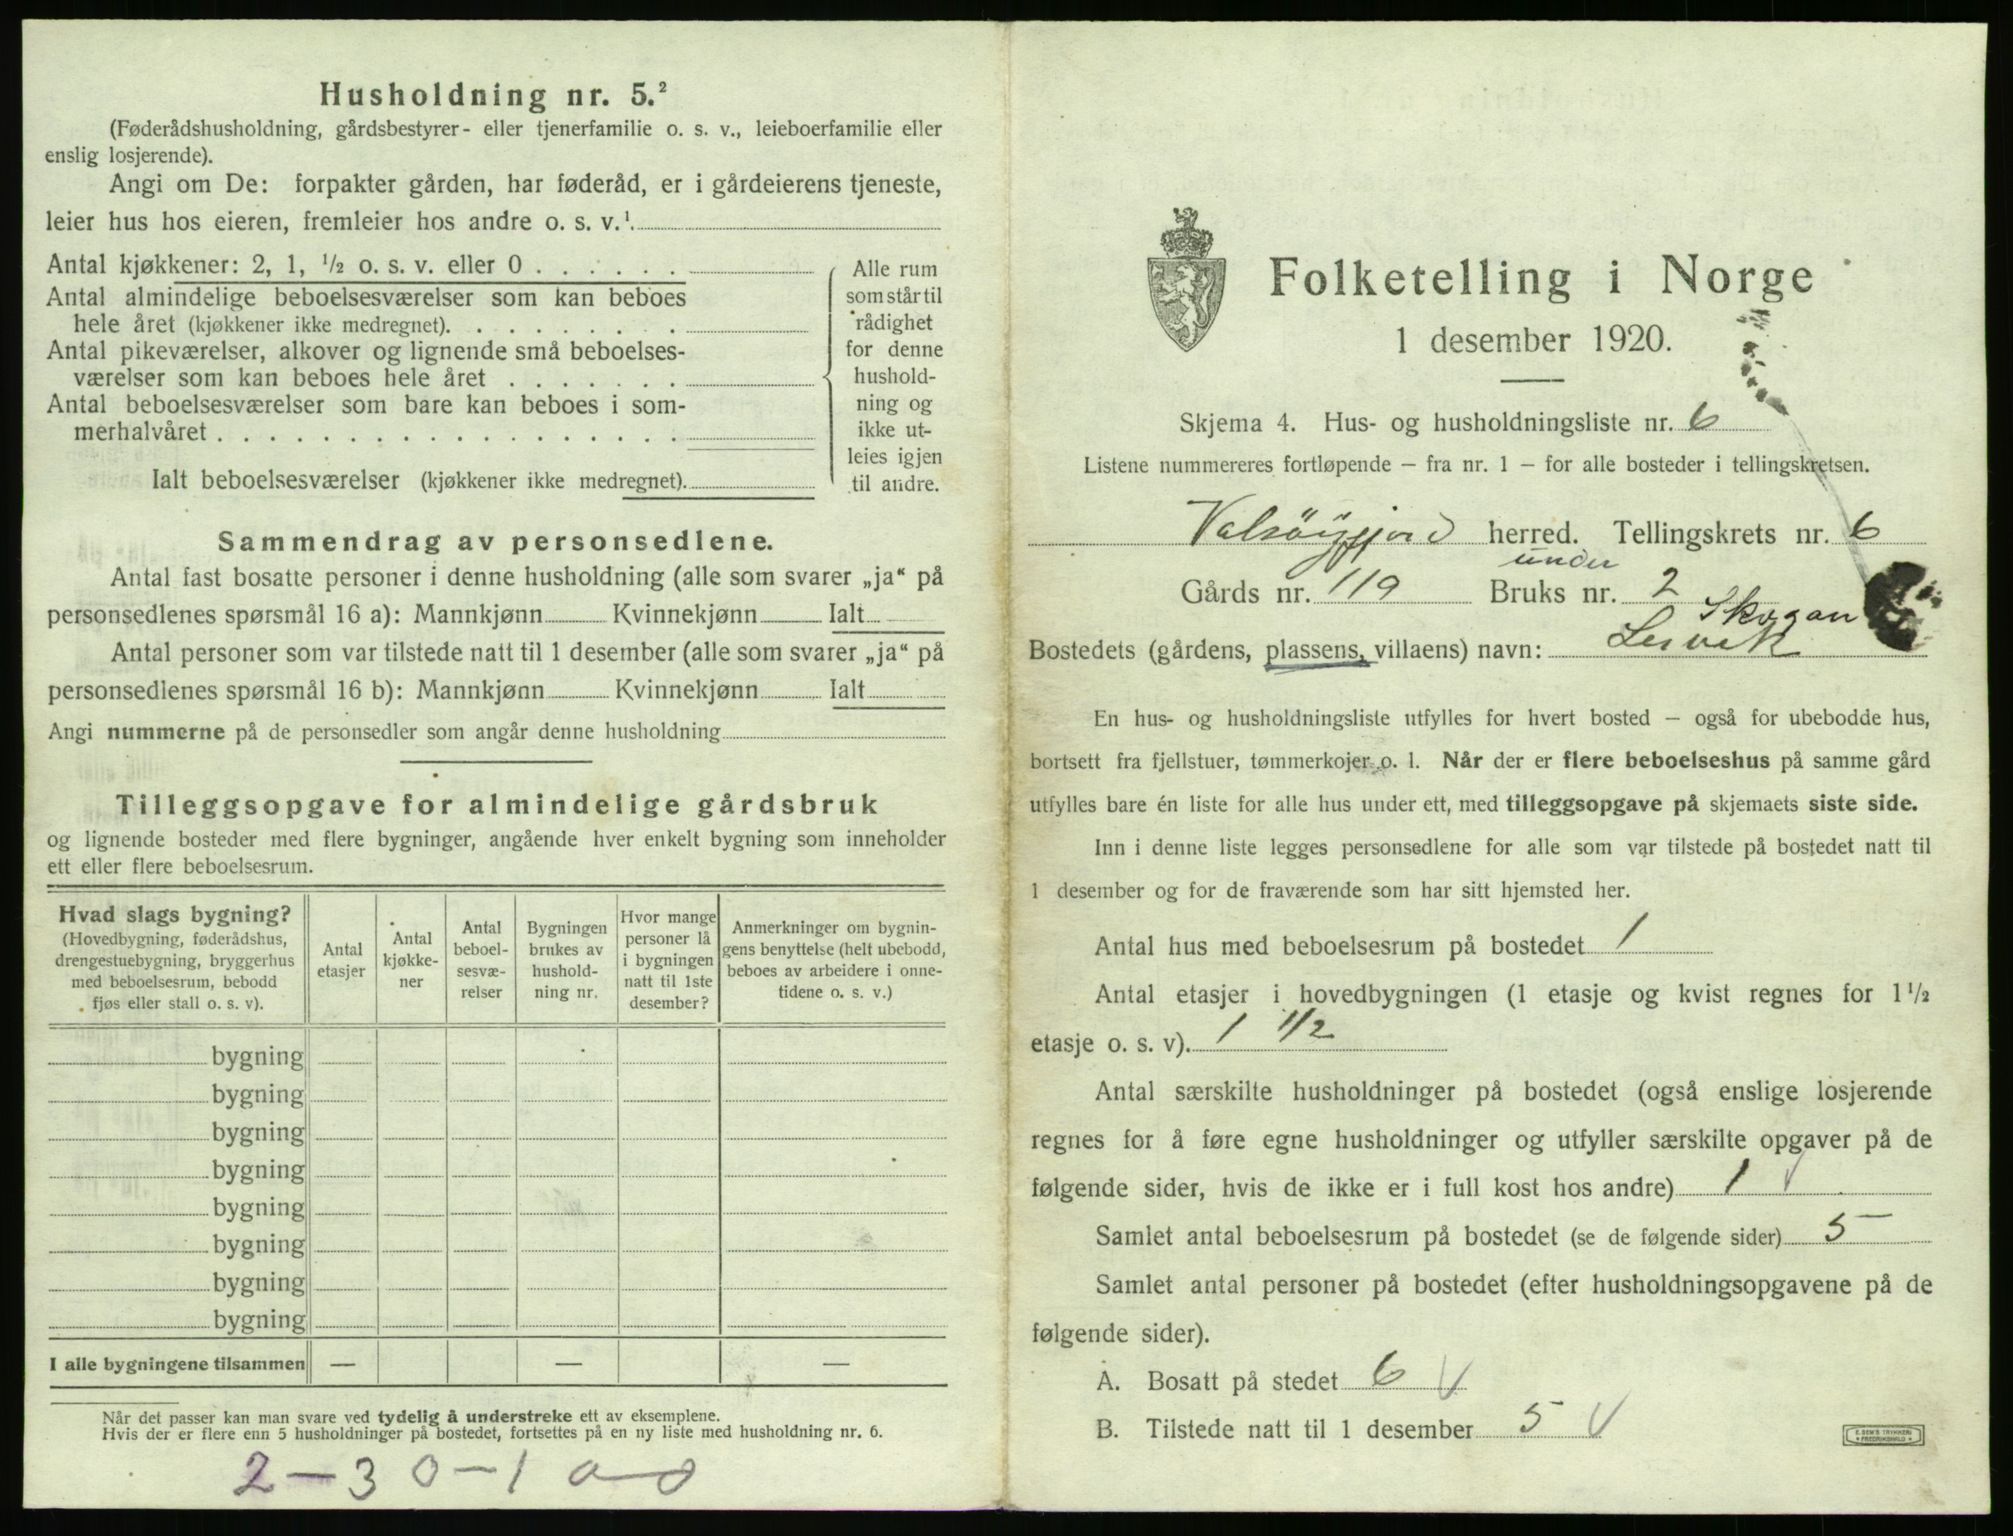 Husholdning nr. 5.²
(Føderådshusholdning, gårdsbestyrer- eller tjenerfamilie o. s. v., leieboerfamilie eller
enslig losjerende).
Angi om De: forpakter gården, har føderåd, er i gårdeierens tjeneste,
leier hus hos eieren, fremleier hos andre o. s. v.¹
Antal kjøkkener: 2, 1, ½ o. s. v. eller 0
Antal almindelige beboelsesværelser som kan beboes
hele året (kjøkkener ikke medregnet)
Antal pikeværelser, alkover og lignende små beboelses-
værelser som kan beboes hele året
Antal beboelsesværelser som bare kan beboes i som-
merhalvåret
Ialt beboelsesværelser (kjøkkener ikke medregnet)
Alle rum
som står til
rådighet
for denne
hushold-
ning og
ikke ut-
leies igjen
til andre.
Sammendrag av personsedlene.
Antal fast bosatte personer i denne husholdning (alle som svarer „ja“ på
personsedlenes spørsmål 16 a): Mannkjønn Kvinnekjønn Ialt
Antal personer som var tilstede natt til 1 desember (alle som svarer „ja“ på
personsedlenes spørsmål 16 b): Mannkjønn Kvinnekjønn Ialt
Angi nummerne på de personsedler som angår denne husholdning
Tilleggsopgave for almindelige gårdsbruk
og lignende bosteder med flere bygninger, angående hver enkelt bygning som inneholder
ett eller flere beboelsesrum.
Hvad slags bygning?
(Hovedbygning, føderådshus,
drengestuebygning, bryggerhus
med beboelsesrum, bebodd
fjøs eller stall o. s. v).
Antal
etasjer
Antal
kjøkke-
ner
Antal
beboel-
sesvæ-
relser
Bygningen
brukes av
hushold-
ning nr.
Hvor mange
personer lå
i bygningen
natt til 1ste
desember?
Anmerkninger om bygnin-
gens benyttelse (helt ubebodd,
beboes av arbeidere i onne-
tidene o. s. v.)
bygning
bygning
bygning
bygning
bygning
bygning
bygning
bygning
I alle bygningene tilsammen — — —
Når det passer kan man svare ved tydelig å understreke ett av eksemplene.
Hvis der er flere enn 5 husholdninger på bostedet, fortsettes på en ny liste med husholdning nr. 6.
2 – 3 0 – 1 0 – 0
Folketelling i Norge
1 desember 1920.
Skjema 4. Hus- og husholdningsliste nr. 6
Listene nummereres fortløpende – fra nr. 1 – for alle bosteder i tellingskretsen.
Valsøyfjord herred. Tellingskrets nr. 6
under
Gårds nr. 119 Bruks nr. 2
Skogan
Bostedets (gårdens, plassens, villaens) navn: Lervik
En hus- og husholdningsliste utfylles for hvert bosted – også for ubebodde hus,
bortsett fra fjellstuer, tømmerkojer o. l. Når der er flere beboelseshus på samme gård
utfylles bare én liste for alle hus under ett, med tilleggsopgave på skjemaets siste side.
Inn i denne liste legges personsedlene for alle som var tilstede på bostedet natt til
1 desember og for de fraværende som har sitt hjemsted her.
Antal hus med beboelsesrum på bostedet 1
Antal etasjer i hovedbygningen (1 etasje og kvist regnes for 1½
etasje o. s. v). 1 1/2
Antal særskilte husholdninger på bostedet (også enslige losjerende
regnes for å føre egne husholdninger og utfyller særskilte opgaver på de
følgende sider, hvis de ikke er i full kost hos andre) 1 √
Samlet antal beboelsesrum på bostedet (se de følgende sider) 5
Samlet antal personer på bostedet (efter husholdningsopgavene på de
følgende sider).
A. Bosatt på stedet 6 √
B. Tilstede natt til 1 desember 5 √
E. SEM'S TRYKKERI
FREDRIKSHALD